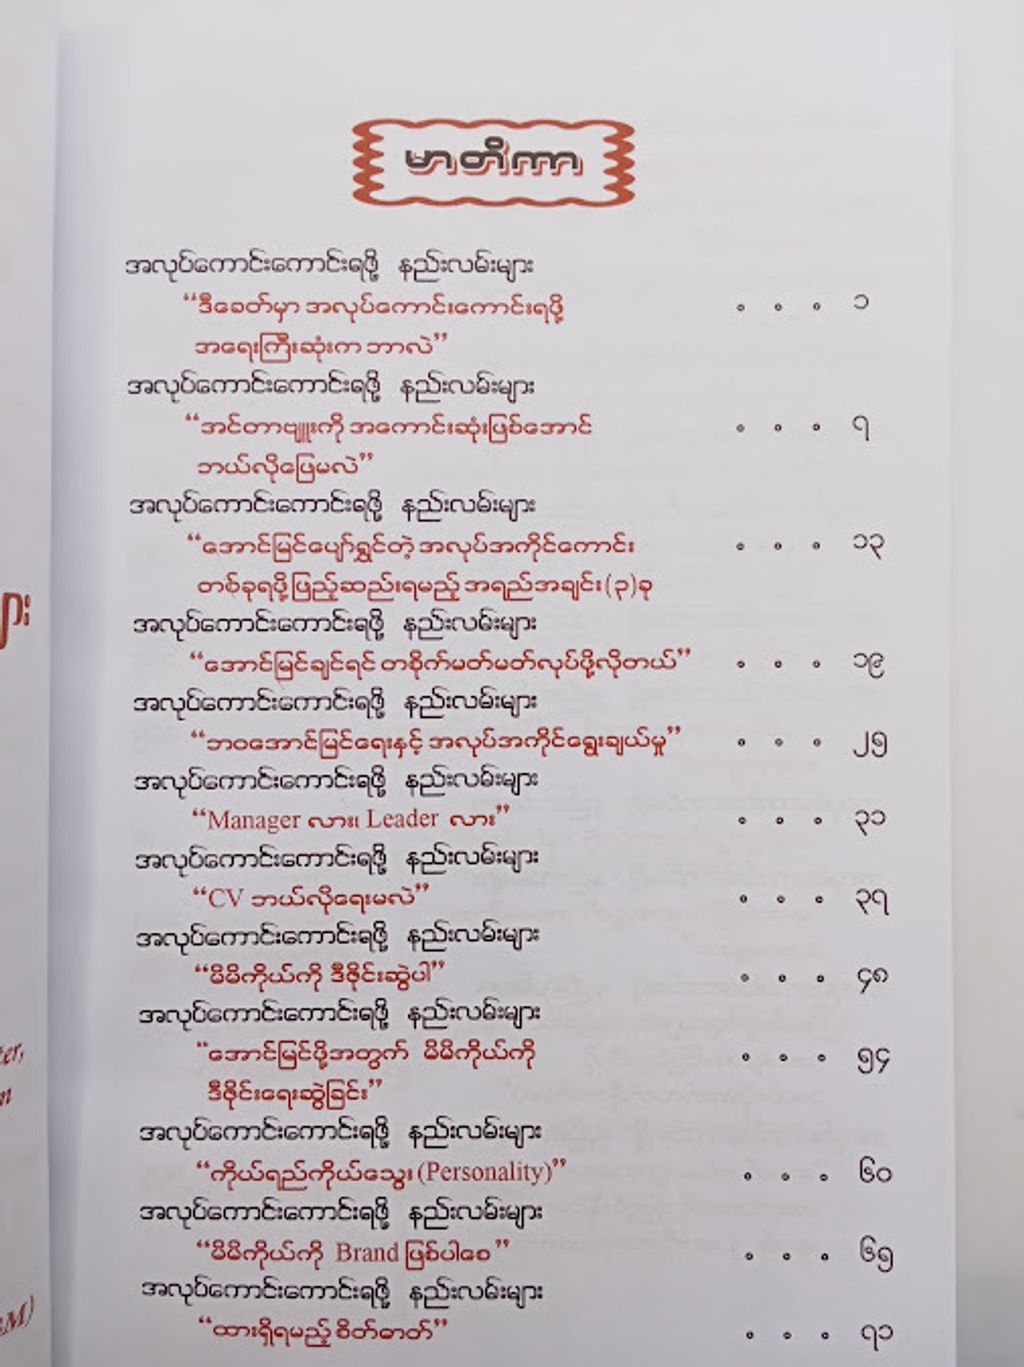 မာတိကာ
အလုပ်ကောင်းကောင်းရဖို့ နည်းလမ်းများ
“ဒီခေတ်မှာ အလုပ်ကောင်းကောင်းရဖို့ ∘ ∘ ∘ ၁
အရေးကြီးဆုံးက ဘာလဲ”
အလုပ်ကောင်းကောင်းရဖို့ နည်းလမ်းများ
“အင်တာဗျူးကို အကောင်းဆုံးဖြစ်အောင် ∘ ∘ ∘ ၇
ဘယ်လိုဖြေမလဲ”
အလုပ်ကောင်းကောင်းရဖို့ နည်းလမ်းများ
“အောင်မြင်ပျော်ရွှင်တဲ့ အလုပ်အကိုင်ကောင်း ∘ ∘ ∘ ၁၃
တစ်ခုရဖို့ ဖြည့်ဆည်းရမည့် အရည်အချင်း (၃) ခု
အလုပ်ကောင်းကောင်းရဖို့ နည်းလမ်းများ
“အောင်မြင်ချင်ရင် တစိုက်မတ်မတ်လုပ်ဖို့လိုတယ်” ∘ ∘ ∘ ၁၉
အလုပ်ကောင်းကောင်းရဖို့ နည်းလမ်းများ
“ဘဝအောင်မြင်ရေးနှင့် အလုပ်အကိုင်ရွေးချယ်မှု” ∘ ∘ ∘ ၂၅
အလုပ်ကောင်းကောင်းရဖို့ နည်းလမ်းများ
“Manager လား၊ Leader လား” ∘ ∘ ∘ ၃၁
အလုပ်ကောင်းကောင်းရဖို့ နည်းလမ်းများ
“CV ဘယ်လိုရေးမလဲ” ∘ ∘ ∘ ၃၇
အလုပ်ကောင်းကောင်းရဖို့ နည်းလမ်းများ
“မိမိကိုယ်ကို ဒီဇိုင်းဆွဲပါ” ∘ ∘ ∘ ၄၈
အလုပ်ကောင်းကောင်းရဖို့ နည်းလမ်းများ
“အောင်မြင်ဖို့အတွက် မိမိကိုယ်ကို ∘ ∘ ∘ ၅၄
ဒီဇိုင်းရေးဆွဲခြင်း”
အလုပ်ကောင်းကောင်းရဖို့ နည်းလမ်းများ
“ကိုယ်ရည်ကိုယ်သွေး (Personality)” ∘ ∘ ∘ ၆၀
အလုပ်ကောင်းကောင်းရဖို့ နည်းလမ်းများ
“မိမိကိုယ်ကို Brand ဖြစ်ပါစေ” ∘ ∘ ∘ ၆၅
အလုပ်ကောင်းကောင်းရဖို့ နည်းလမ်းများ
“ထားရှိရမည့် စိတ်ဓာတ်” ∘ ∘ ∘ ၇၁